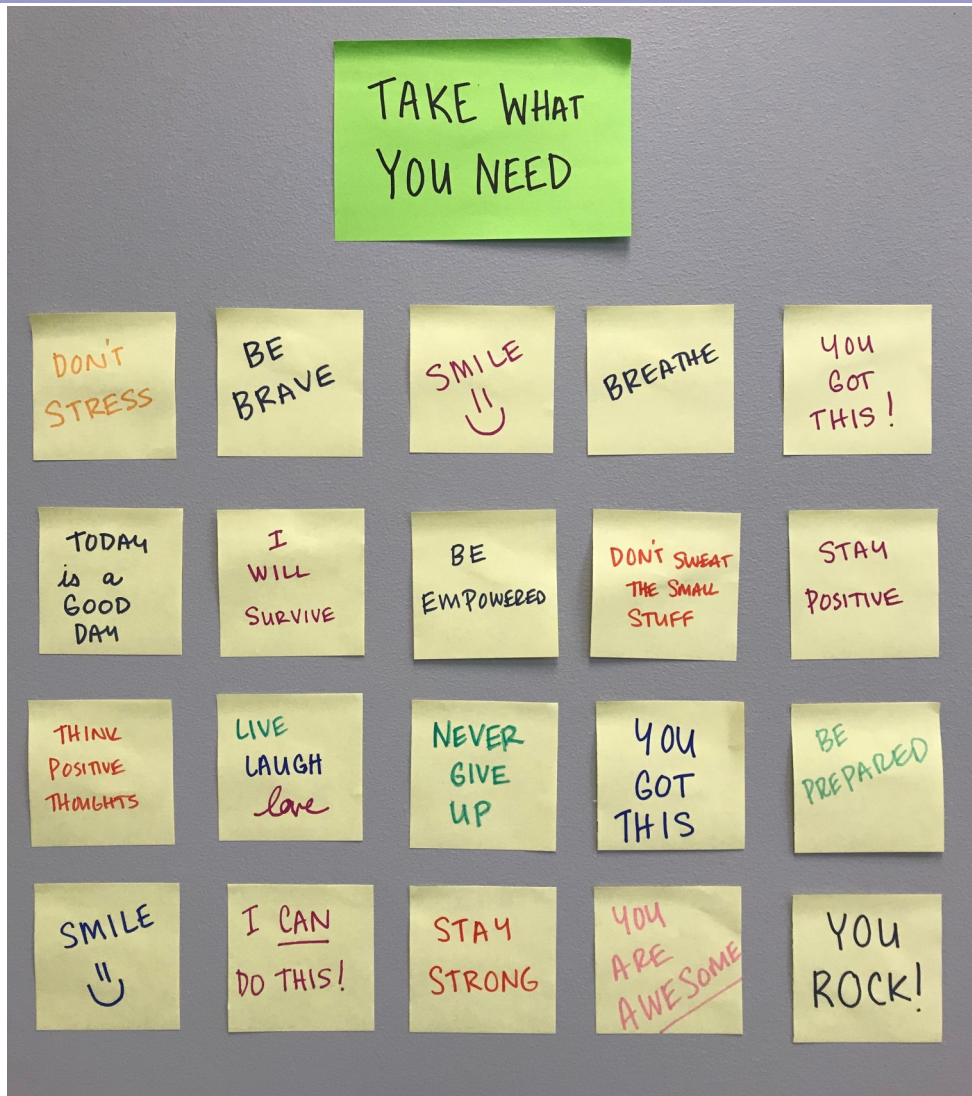 TAKE WHAT
YOU NEED
DON'T
STRESS
BE
BRAVE
SMILE
BREATHE
YOU
GOT
THIS!
TODAY
is a
GOOD
DAY
I
WILL
SURVIVE
BE
EMPOWERED
DON'T SWEAT
THE SMALL
STUFF
STAY
POSITIVE
THINK
POSITIVE
THOUGHTS
LIVE
LAUGH
love
NEVER
GIVE
UP
YOU
GOT
THIS
BE
PREPARED
SMILE
I CAN
DO THIS!
STAY
STRONG
YOU
ARE
AWESOME
YOU
ROCK!